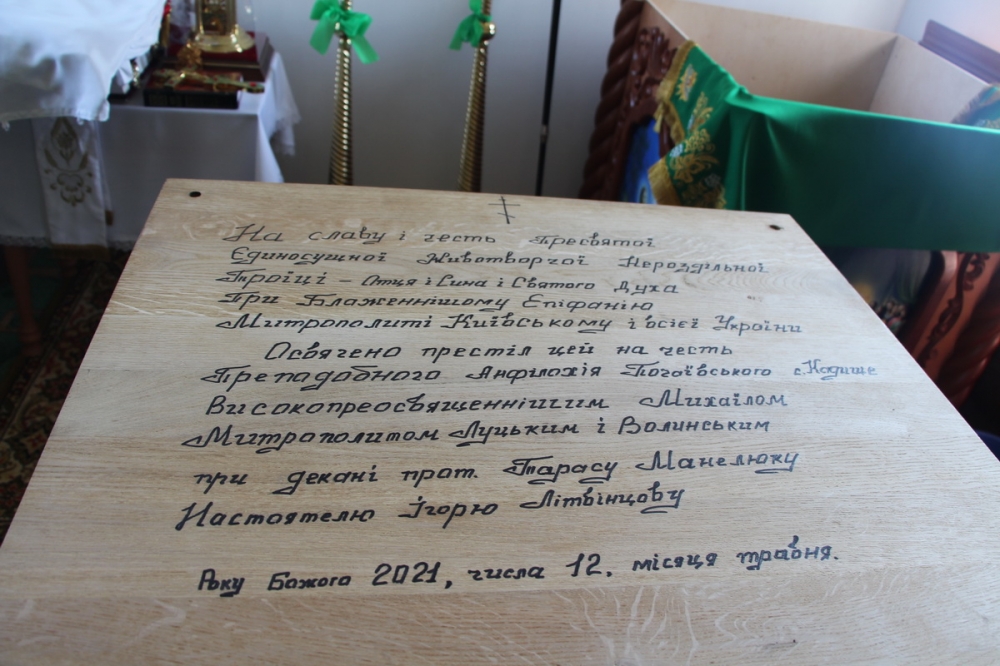 На славу і честь Пресвятої
Єдиносущної Животворчої Нероздільної
Тройці – Отця і Сина і Святого Духа
При Блаженнішому Епіфанію
Митрополиті Київському і всієї України
Освячено престіл цей на честь
Преподобного Амфілохія Почаївського с. Кадище
Високопреосвященнішим Михаїлом
Митрополитом Луцьким і Волинським
при декані прот. Тарасу Манелюку
Настоятелю Ігорю Літвінцову
Року Божого 2021, числа 12, місяця травня.